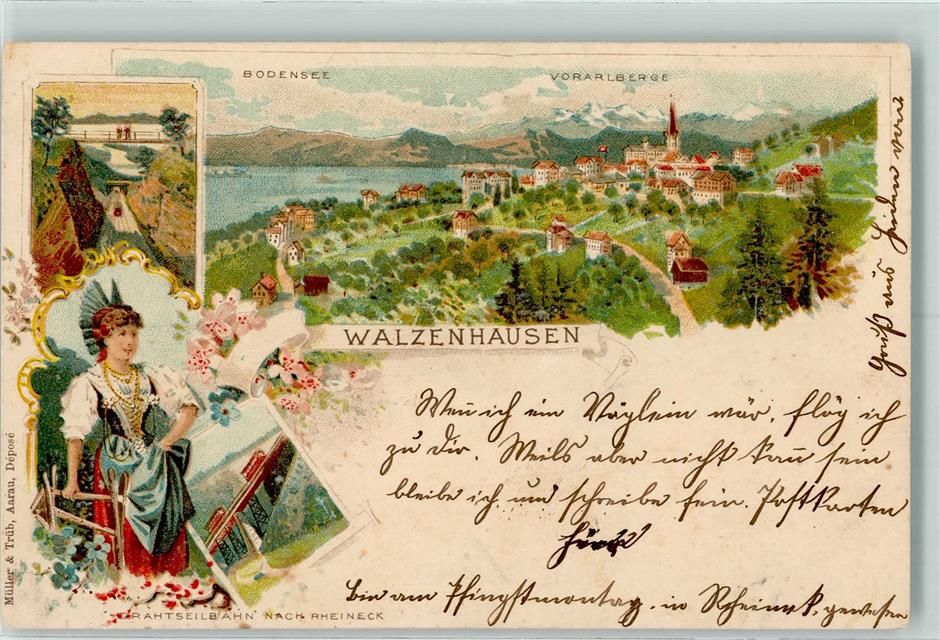 BODENSEE VORARLBERGE
WALZENHAUSEN
Wen̄ ich ein Vöglein wär, flög ich
zu dir. Weils aber nicht kan̄ sein
bleibe ich und schreibe fein. Postkarten
Bin am Pfingstmontag in Rheineck gewesen
Gruß aus
DRAHTSEILBAHN NACH RHEINECK
Müller & Trüb, Aarau, Déposé